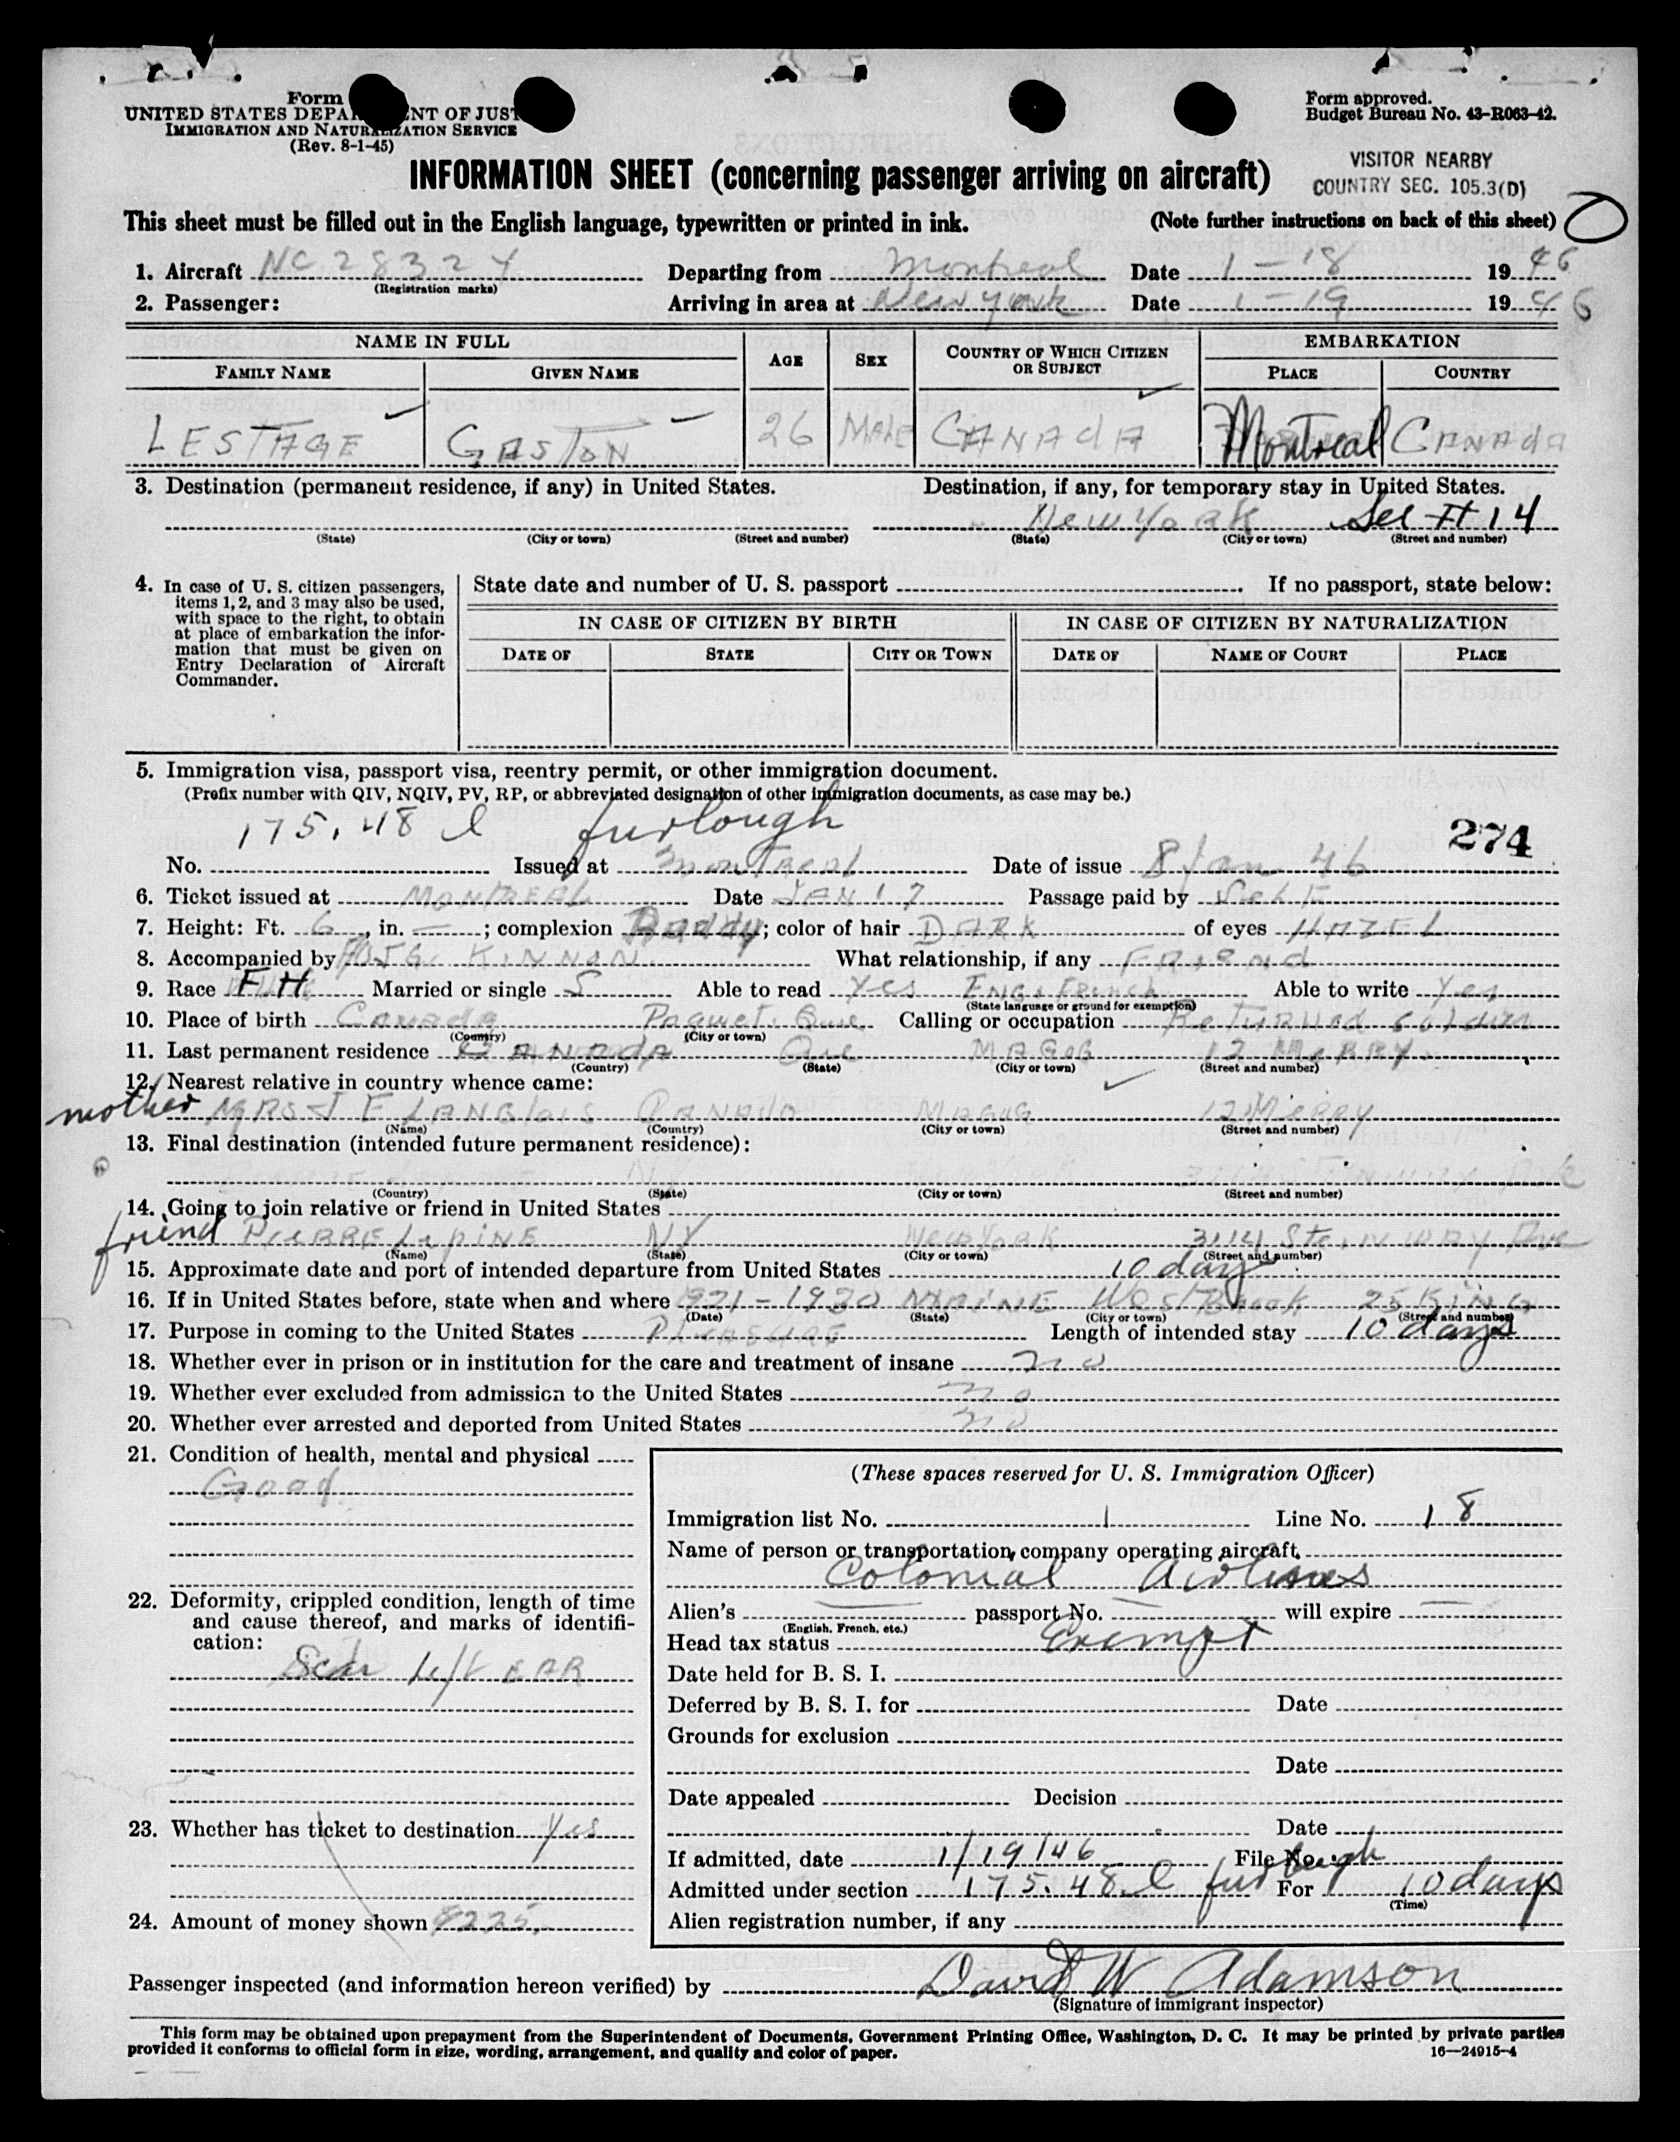 Form
UNITED STATES DEPA NT OF JUST
IMMIGRATION AND NATURALIZATION SERVICE
(Rev. 8-1-45)
Form approved.
Budget Bureau No. 43-R063-42.
INFORMATION SHEET (concerning passenger arriving on aircraft)
VISITOR NEARBY
COUNTRY SEC. 105.3(D)
This sheet must be filled out in the English language, typewritten or printed in ink. (Note further instructions on back of this sheet)
1. Aircraft NC 28324 Departing from Montreal Date 1-18 1946
(Registration marks)
2. Passenger: Arriving in area at New York Date 1-19 1946
NAME IN FULL AGE SEX COUNTRY OF WHICH CITIZEN OR SUBJECT EMBARKATION
FAMILY NAME GIVEN NAME PLACE COUNTRY
LESTAGE GASTON 26 MALE CANADA Montreal CANADA
3. Destination (permanent residence, if any) in United States. Destination, if any, for temporary stay in United States.
New York See # 14
(State) (City or town) (Street and number) (State) (City or town) (Street and number)
4. In case of U. S. citizen passengers, items 1, 2, and 3 may also be used, with space to the right, to obtain at place of embarkation the information that must be given on Entry Declaration of Aircraft Commander.
State date and number of U. S. passport . If no passport, state below:
IN CASE OF CITIZEN BY BIRTH IN CASE OF CITIZEN BY NATURALIZATION
DATE OF STATE CITY OR TOWN DATE OF NAME OF COURT PLACE
5. Immigration visa, passport visa, reentry permit, or other immigration document.
(Prefix number with QIV, NQIV, PV, RP, or abbreviated designation of other immigration documents, as case may be.)
175.48 l furlough 274
No. Issued at Montreal Date of issue 8 Jan 46
6. Ticket issued at MONTREAL Date JAN 17 Passage paid by SELF
7. Height: Ft. 6, in. —; complexion Ruddy; color of hair DARK of eyes HAZEL
8. Accompanied by KINNON What relationship, if any FRIEND
9. Race F.H. Married or single S Able to read Yes ENG. French Able to write Yes
(State language or ground for exemption)
10. Place of birth Canada Paquet. Que Calling or occupation Returned soldier
(Country) (City or town)
11. Last permanent residence CANADA Que MAGOG 12 MERRY.
(Country) (State) (City or town) (Street and number)
12. Nearest relative in country whence came:
mother MRS J E LANGLOIS CANADA MAGOG 12 MERRY
(Name) (Country) (City or town) (Street and number)
13. Final destination (intended future permanent residence):
(Country) (State) (City or town) (Street and number)
14. Going to join relative or friend in United States
friend PIERRE LEPINE NY New York 3114 Steinway Ave
(Name) (State) (City or town) (Street and number)
15. Approximate date and port of intended departure from United States 10 days
16. If in United States before, state when and where 1921-1930 MAINE West Brook 25 KING
(Date) (State) (City or town) (Street and number)
17. Purpose in coming to the United States PLEASURE Length of intended stay 10 days
18. Whether ever in prison or in institution for the care and treatment of insane no
19. Whether ever excluded from admission to the United States no
20. Whether ever arrested and deported from United States no
21. Condition of health, mental and physical
Good
22. Deformity, crippled condition, length of time and cause thereof, and marks of identification:
Scar left EAR
23. Whether has ticket to destination Yes
24. Amount of money shown $225.
(These spaces reserved for U. S. Immigration Officer)
Immigration list No. 1 Line No. 18
Name of person or transportation company operating aircraft
Colonial Airlines
Alien's — passport No. — will expire —
(English, French, etc.)
Head tax status Exempt
Date held for B. S. I.
Deferred by B. S. I. for Date
Grounds for exclusion
Date
Date appealed Decision
Date
If admitted, date 1/19/46 File No.
Admitted under section 175.48 l furlough For 10 days
(Time)
Alien registration number, if any
Passenger inspected (and information hereon verified) by David W Adamson
(Signature of immigrant inspector)
This form may be obtained upon prepayment from the Superintendent of Documents, Government Printing Office, Washington, D. C. It may be printed by private parties
provided it conforms to official form in size, wording, arrangement, and quality and color of paper. 16—24915-4